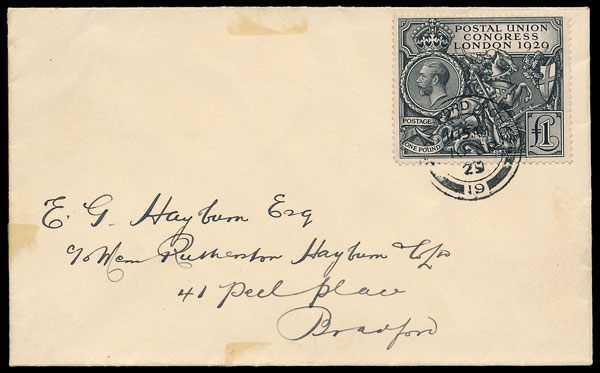 POSTAL UNION
CONGRESS
LONDON 1929
POSTAGE
ONE POUND
£1
29
19
E. G. Hayburn Esq
c/o Wem Rutherston Hayburn & Co
41 Peel Place
Bradford